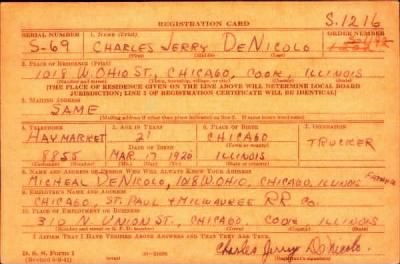 REGISTRATION CARD
S.1216
SERIAL NUMBER 1. NAME (Print) ORDER NUMBER
S-69 CHARLES JERRY DENICOLO
(First) (Middle) (Last)
2. PLACE OF RESIDENCE (Print)
1018 W. OHIO ST., CHICAGO, COOK, ILLINOIS
[THE PLACE OF RESIDENCE GIVEN ON THE LINE ABOVE WILL DETERMINE LOCAL BOARD
JURISDICTION; LINE 2 OF REGISTRATION CERTIFICATE WILL BE IDENTICAL]
3. MAILING ADDRESS
SAME
[Mailing address if other than place indicated on line 2. If same insert word same]
4. TELEPHONE 5. AGE IN YEARS 6. PLACE OF BIRTH 7. OCCUPATION
HAYMARKET 21 CHICAGO TRUCKER
DATE OF BIRTH
8855 MAR. 17 1920 ILLINOIS
8. NAME AND ADDRESS OF PERSON WHO WILL ALWAYS KNOW YOUR ADDRESS
MICHEAL DENICOLO, 1018 W. OHIO, CHICAGO, ILLINOIS FATHER
9. EMPLOYER'S NAME AND ADDRESS
CHICAGO, ST. PAUL & MILWAUREE RR CO.
10. PLACE OF EMPLOYMENT OR BUSINESS
310 N. UNION ST., CHICAGO, COOK ILLINOIS
I AFFIRM THAT I HAVE VERIFIED ABOVE ANSWERS AND THAT THEY ARE TRUE.
D. S. S. Form 1
Charles Jerry DeNicolo